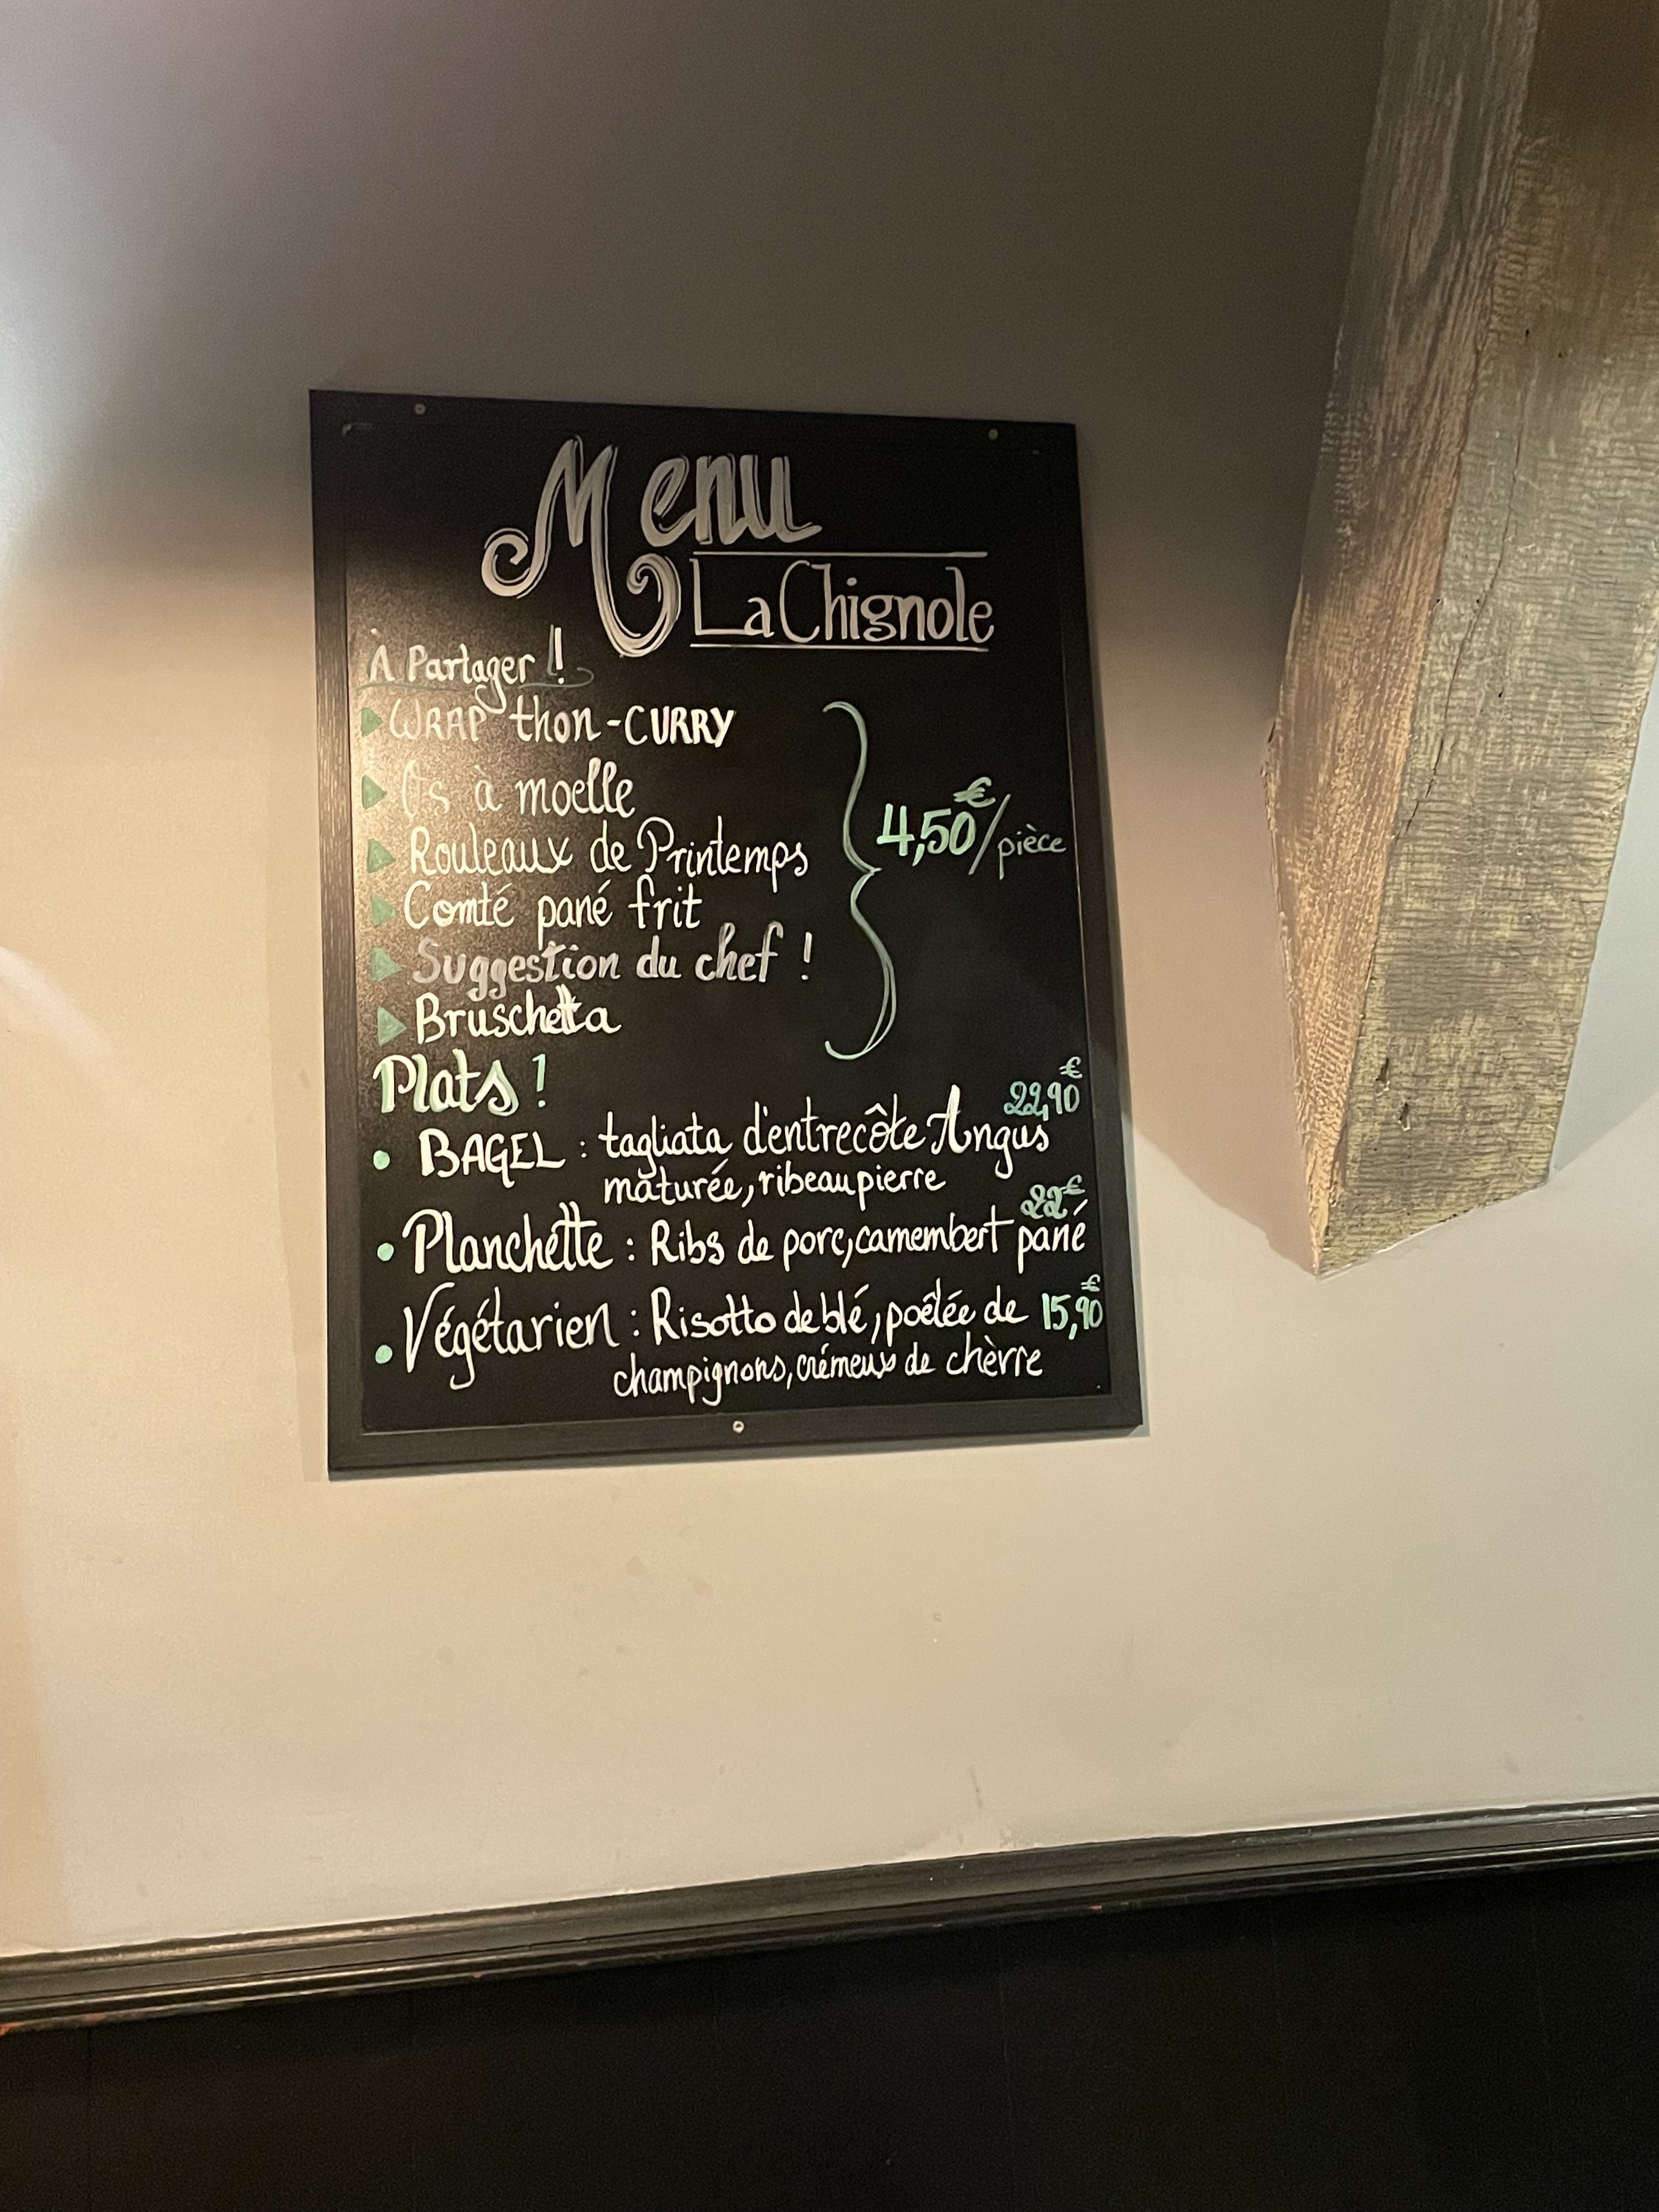 Menu
La Chignole
À Partager !
WRAP thon-CURRY
Os à moelle
Rouleaux de Printemps
Comté pané frit
Suggestion du chef !
Bruschetta
4,50€/pièce
Plats !
22,90€
• BAGEL : tagliata d'entrecôte Angus
maturée, ribeaupierre
22€
• Planchette : Ribs de porc, camembert pané
• Végétarien : Risotto de blé, poêlée de 15,90€
champignons, crémeux de chèvre